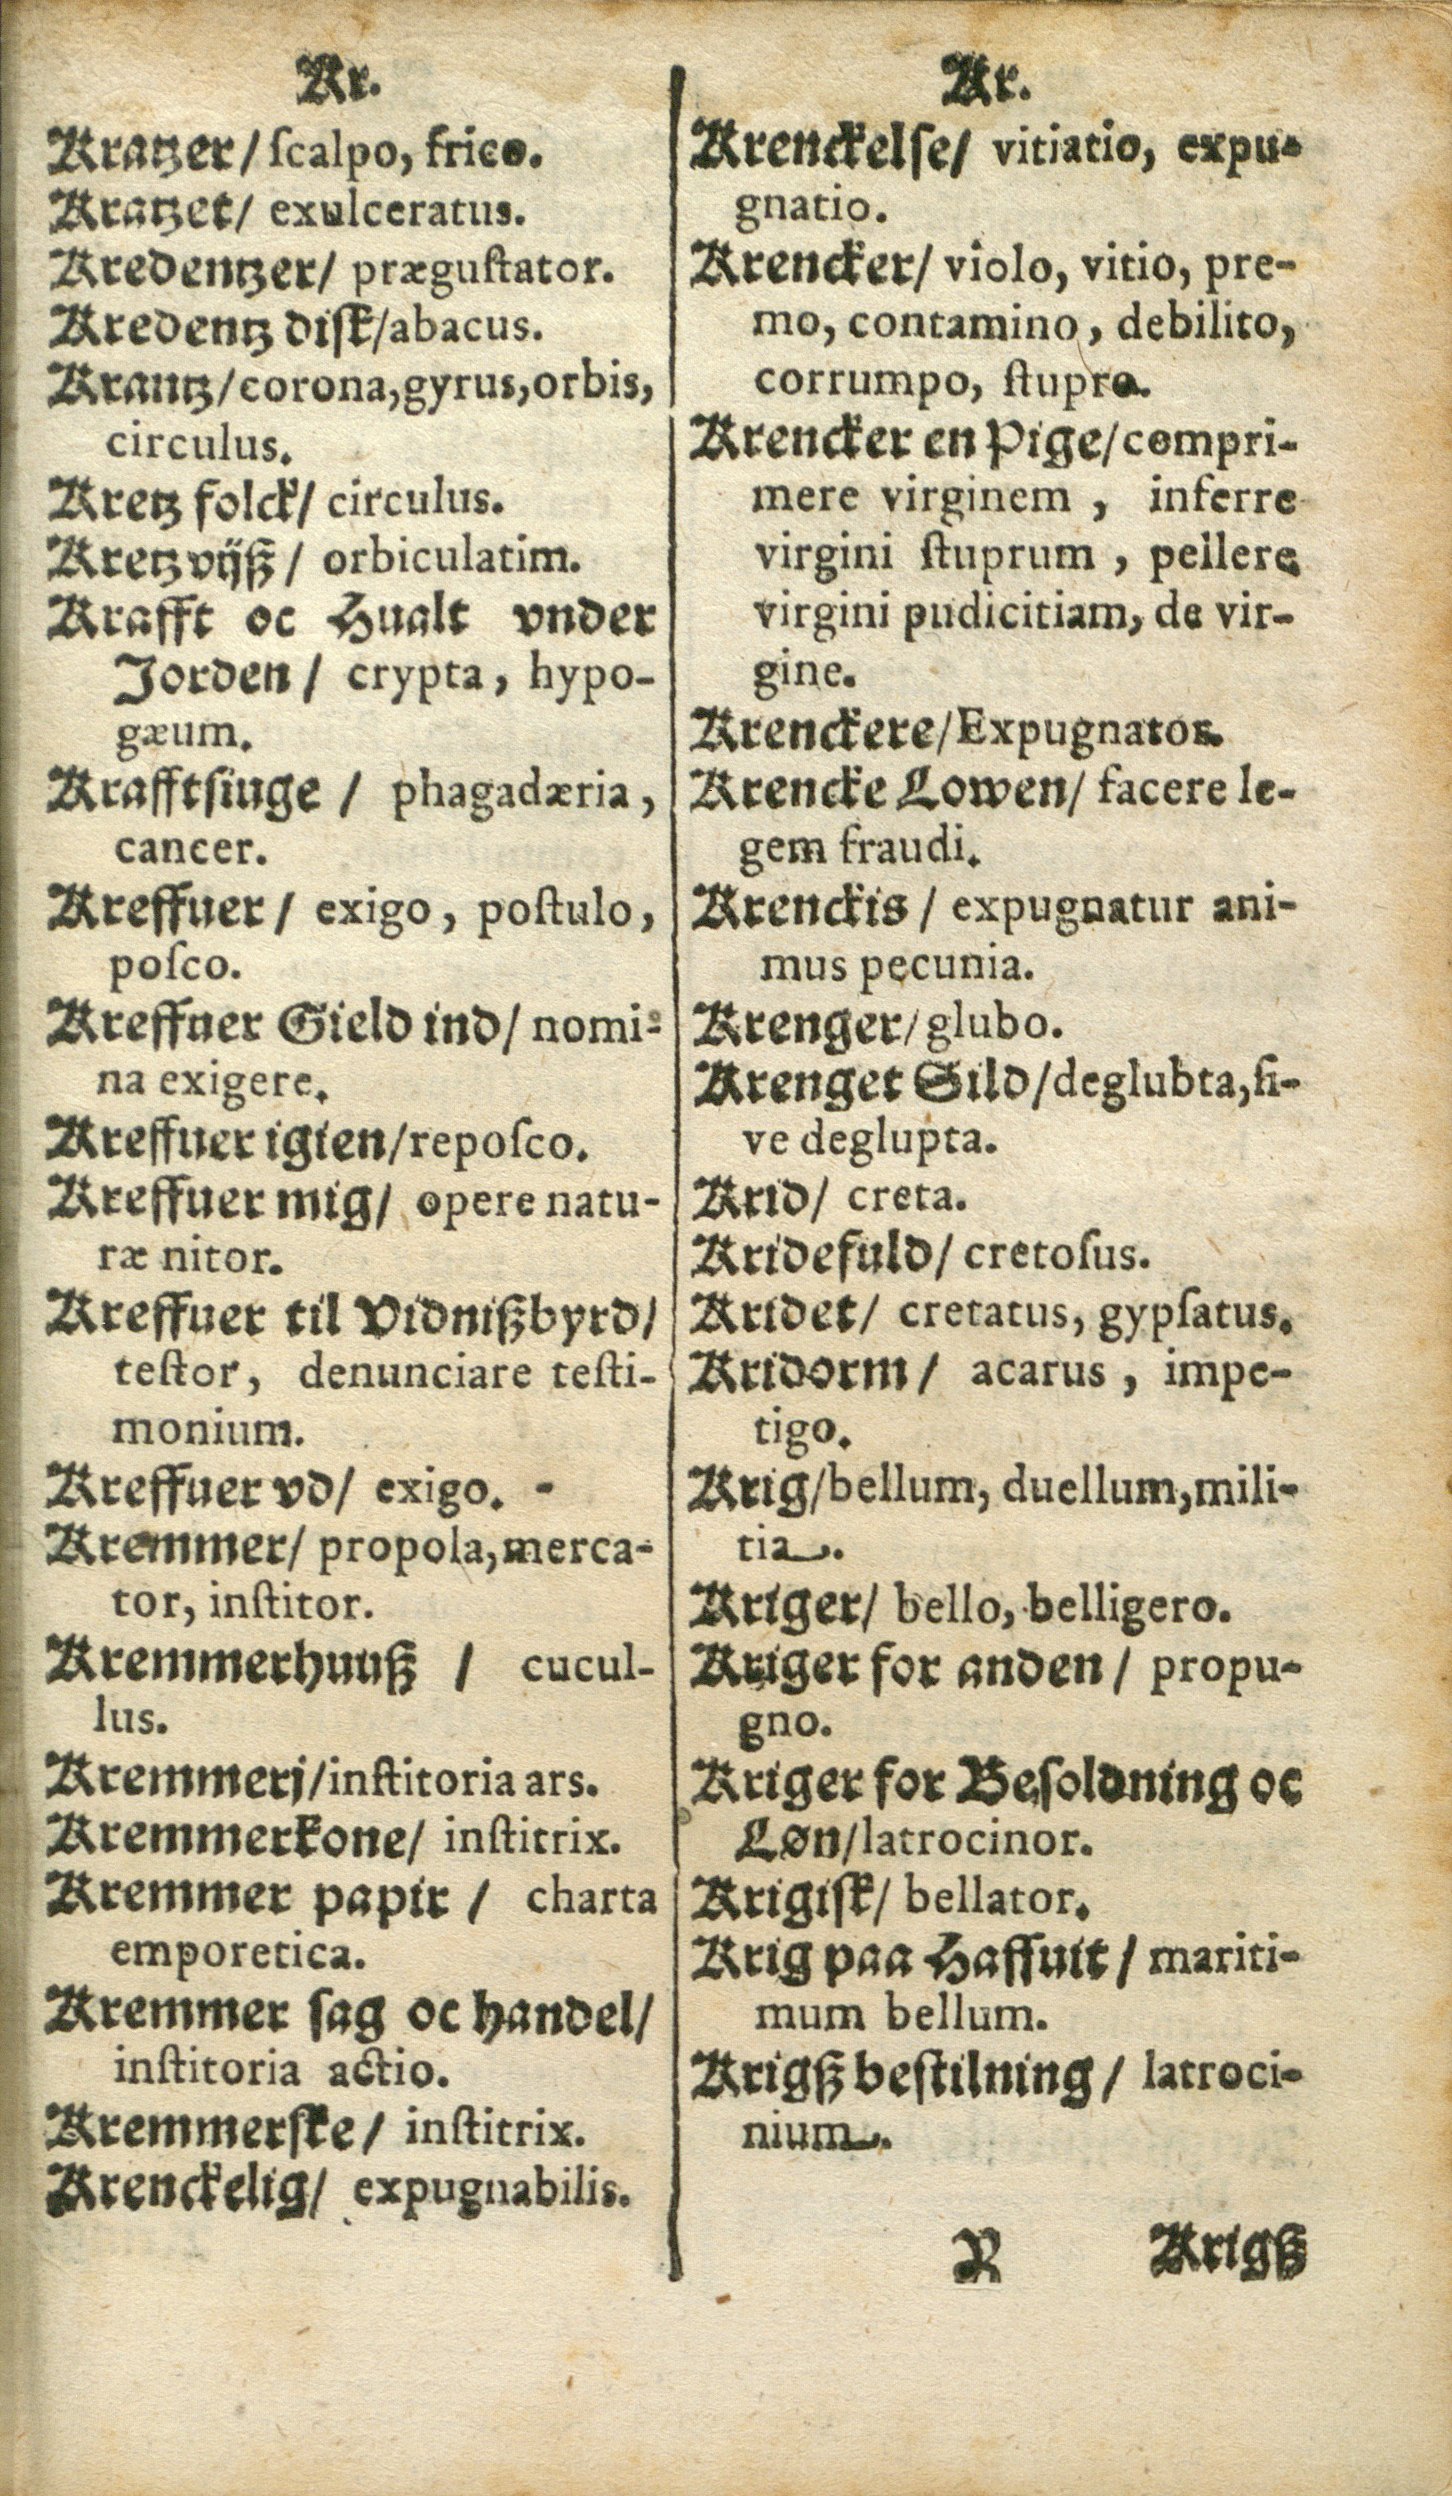 Kr.
Kratzer/ ſcalpo, frico.
Kratzet/ exulceratus.
Kredentzer/ præguſtator.
Kredentz diſk/abacus.
Krantz/corona,gyrus,orbis,
circulus.
Kretz folck/ circulus.
Kretz vijß/ orbiculatim.
Krafft oc Hualt vnder
Jorden/ crypta, hypo-
gæum.
Krafftſiuge / phagadæria,
cancer.
Kreffuer/ exigo, poſtulo,
poſco.
Kreffuer Gield ind/ nomi-
na exigere.
Kreffuer igien/repoſco.
Kreffuer mig/ opere natu-
ræ nitor.
Kreffuer til Vidnißbyrd/
teſtor, denunciare teſti-
monium.
Kreffuer vd/ exigo. -
Kremmer/ propola,merca-
tor, inſtitor.
Kremmerhuuß / cucul-
lus.
Kremmerj/inſtitoria ars.
Kremmerkone/ inſtitrix.
Kremmer papir / charta
emporetica.
Kremmer ſag oc handel/
inſtitoria actio.
Kremmerſke/ inſtitrix.
Krenckelig/ expugnabilis.
Kr.
Krenckelſe/ vitiatio, expu-
gnatio.
Krencker/ violo, vitio, pre-
mo, contamino, debilito,
corrumpo, ſtupro.
Krencker en Pige/compri-
mere virginem , inferre
virgini ſtuprum , pellere
virgini pudicitiam, de vir-
gine.
Krenckere/Expugnator.
Krencke Lowen/ facere le-
gem fraudi.
Krenckis / expugnatur ani-
mus pecunia.
Krenger/glubo.
Krenget Sild/deglubta,ſi-
ve deglupta.
Krid/ creta.
Kridefuld/ cretoſus.
Kridet/ cretatus, gypſatus.
Kridorm/ acarus , impe-
tigo.
Krig/bellum, duellum,mili-
tia.
Kriger/ bello, belligero.
Kriger for anden/ propu-
gno.
Kriger for Beſoldning oc
Løn/latrocinor.
Krigiſk/ bellator.
Krig paa Haffuit/ mariti-
mum bellum.
Krigß beſtilning/ latroci-
nium.
R Krigß